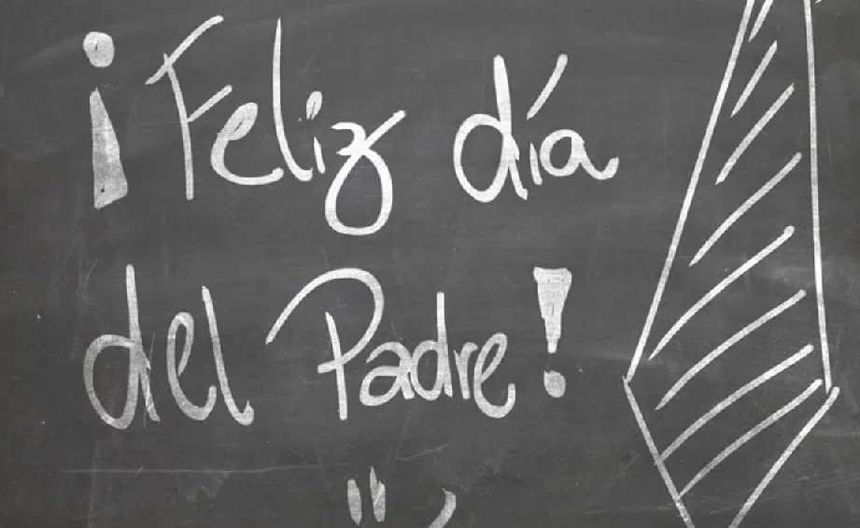 ¡Feliz día
del Padre!